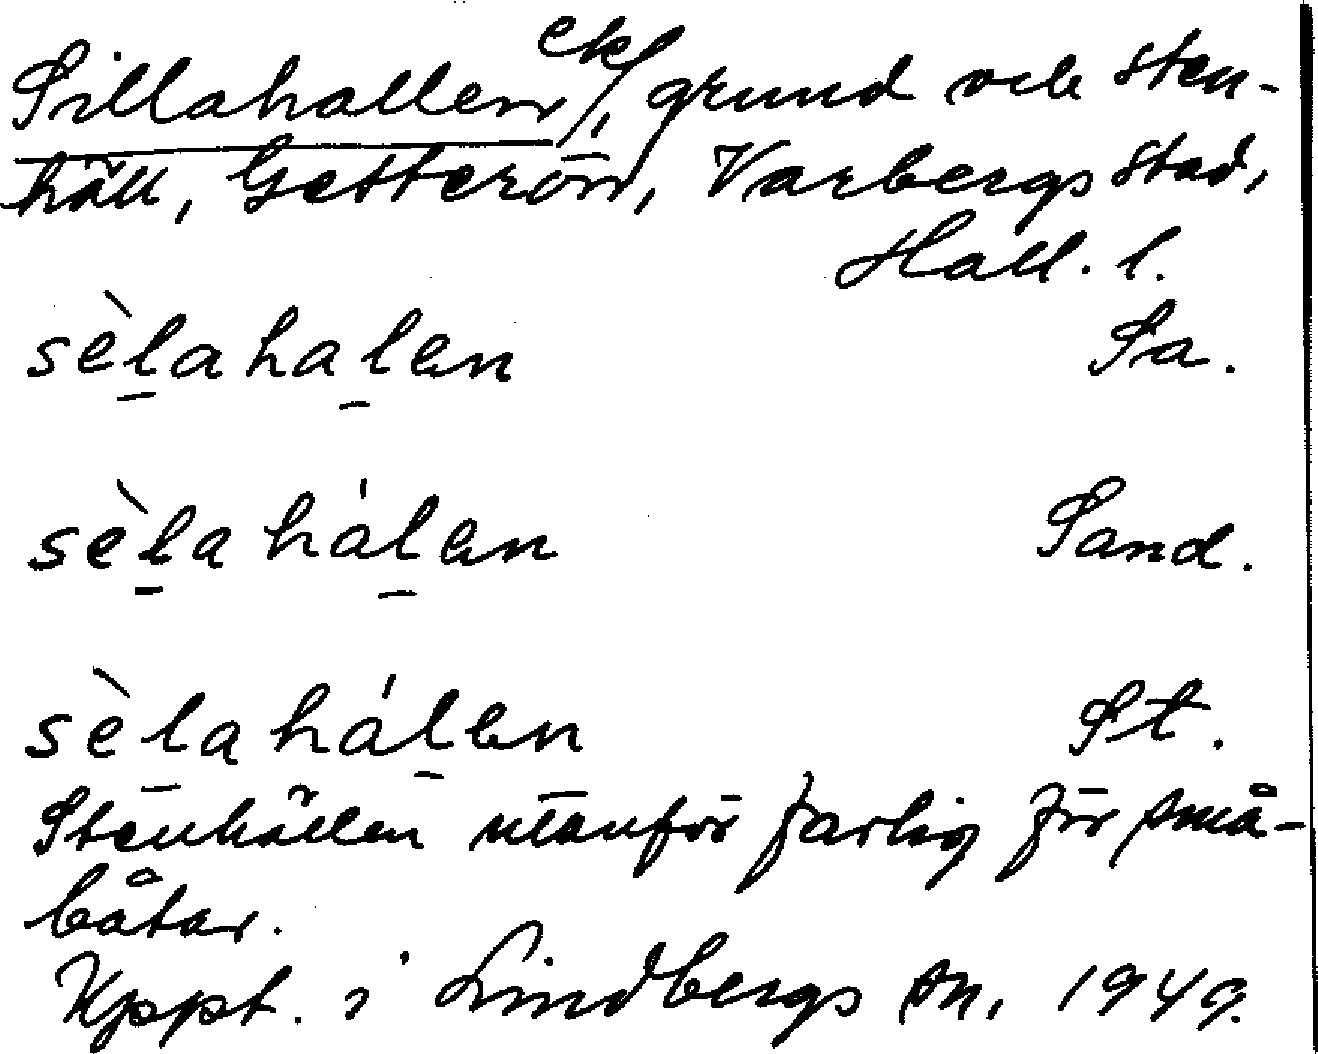 Sillahallen ek/, grund och sten-
häll, Getterön, Varbergs stad,
Hall. l.
sèlahalen Sa.
sèlahálen Sand.
sèlahálen St.
Stenhällen utanför farlig för små-
båtar.
Uppt. i Lindbergs sn. 1949.